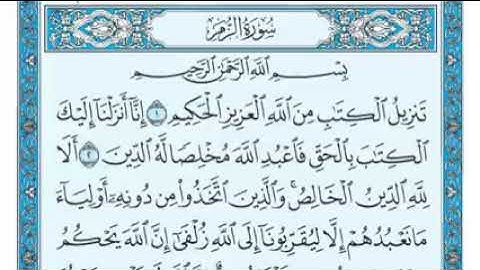 سُورَةُ الزُّمَرِ
بِسْمِ اللَّهِ الرَّحْمَٰنِ الرَّحِيمِ
تَنزِيلُ الْكِتَٰبِ مِنَ اللَّهِ الْعَزِيزِ الْحَكِيمِ ١ إِنَّا أَنزَلْنَا إِلَيْكَ
الْكِتَٰبَ بِالْحَقِّ فَاعْبُدِ اللَّهَ مُخْلِصًا لَّهُ الدِّينَ ٢ أَلَا
لِلَّهِ الدِّينُ الْخَالِصُ ۚ وَالَّذِينَ اتَّخَذُوا مِن دُونِهِ أَوْلِيَاءَ
مَا نَعْبُدُهُمْ إِلَّا لِيُقَرِّبُونَا إِلَى اللَّهِ زُلْفَىٰ إِنَّ اللَّهَ يَحْكُمُ